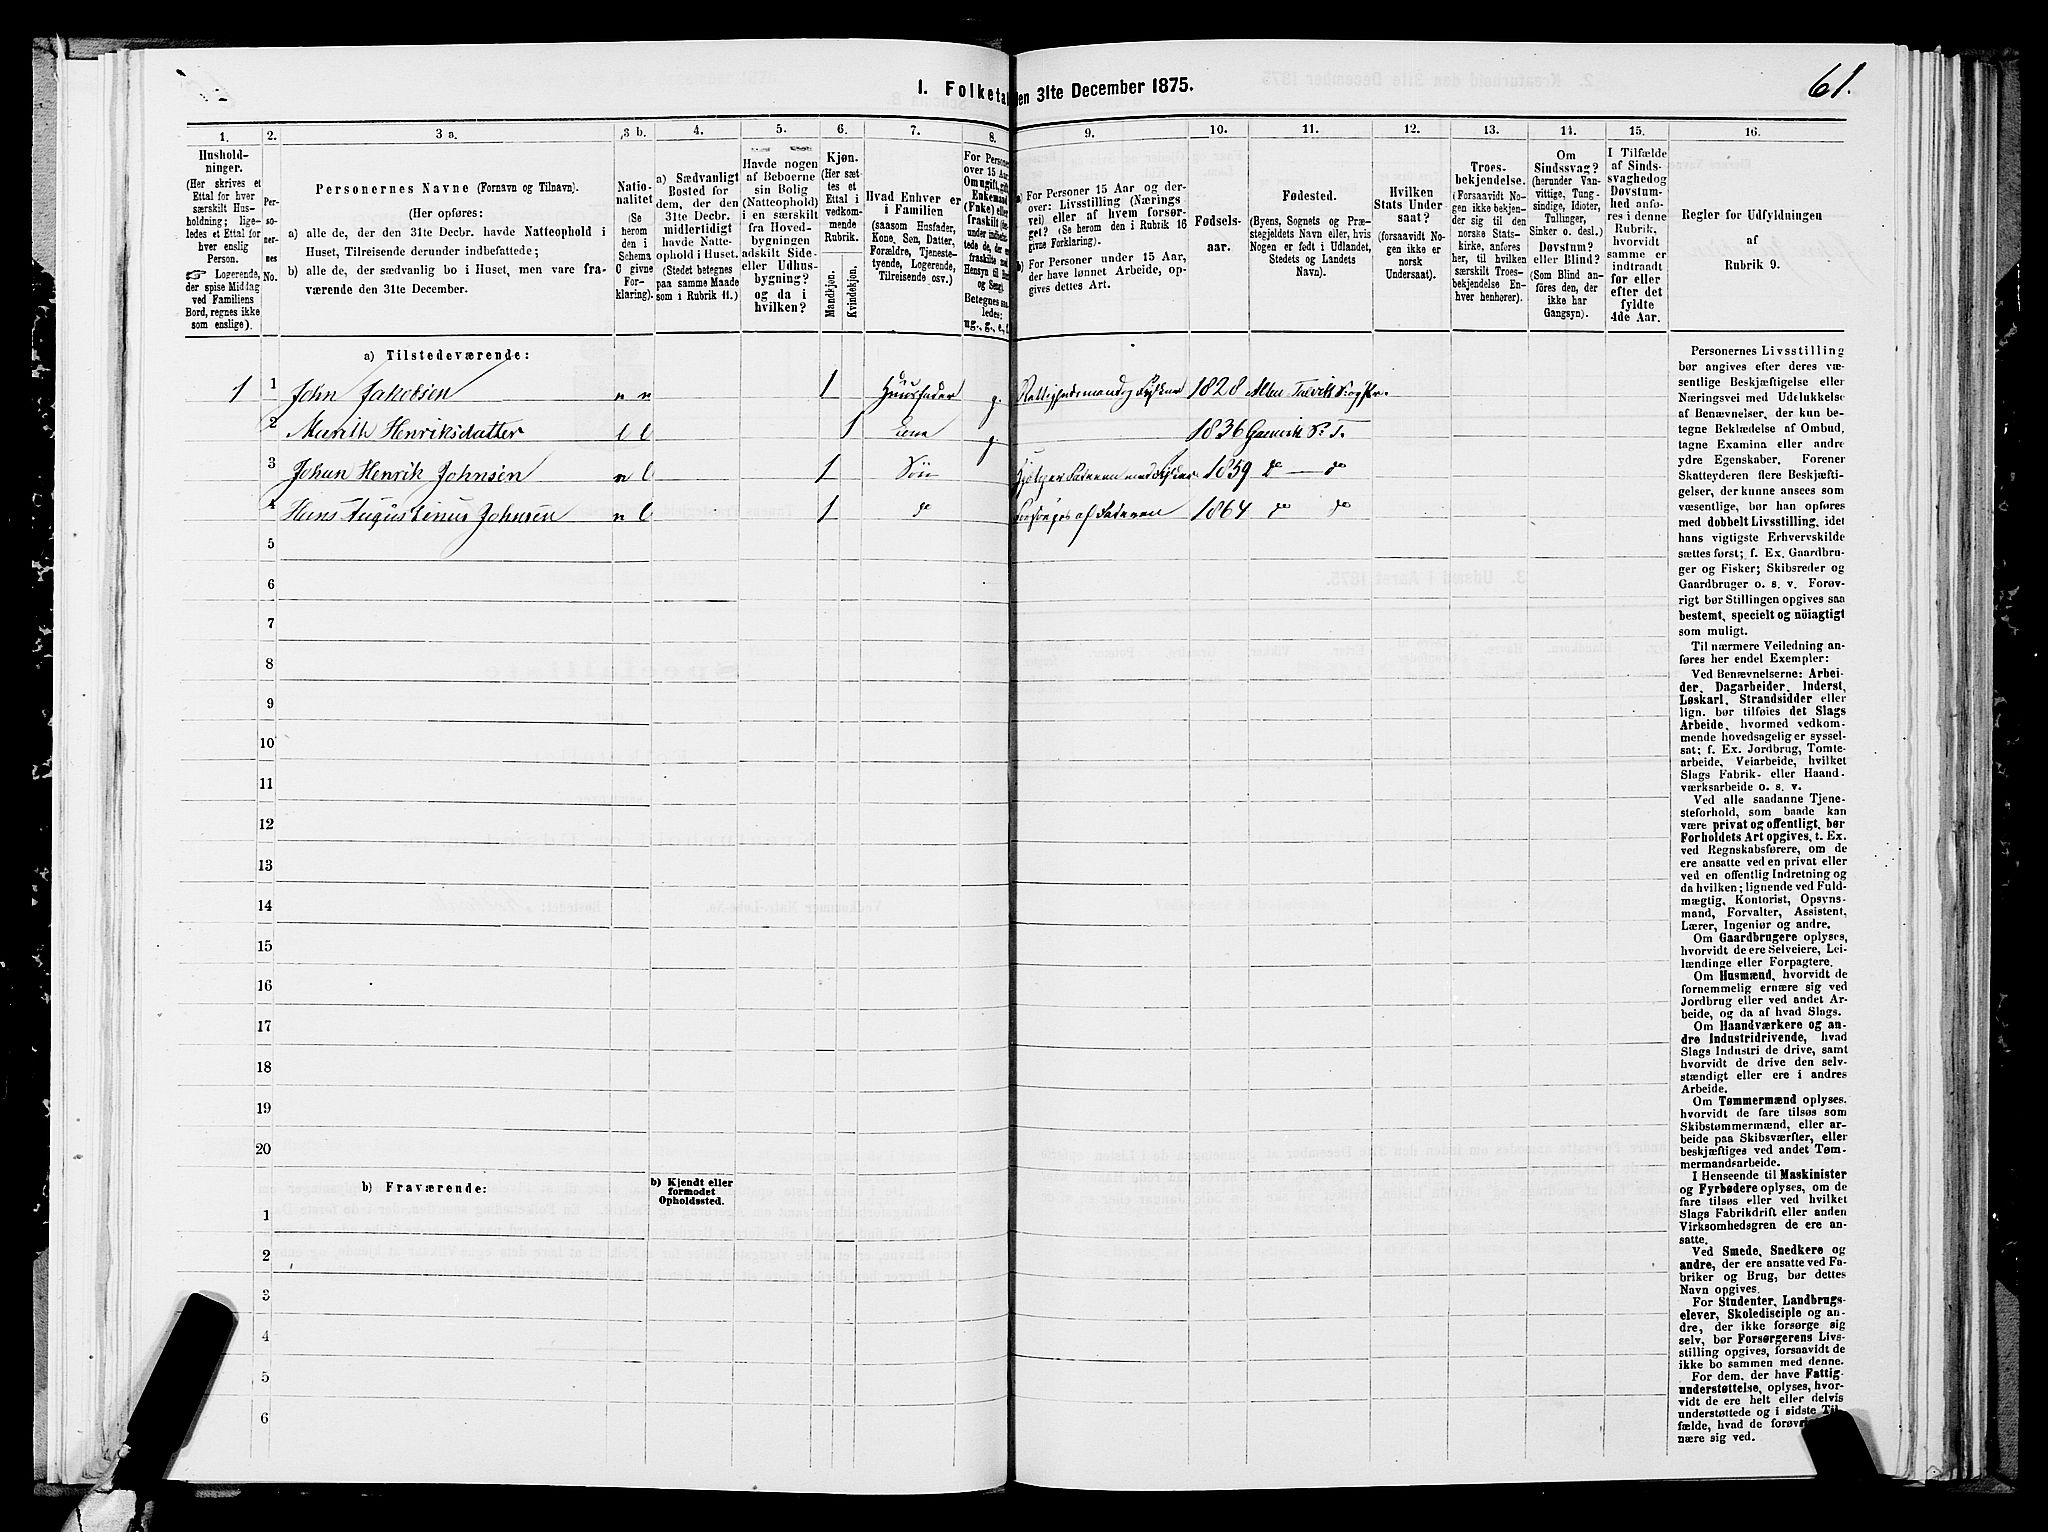 61.
1. Folketal den 31te December 1875.
1. 2. 3 a. 3 b. 4. 5. 6. 7. 8. 9. 10. 11. 12. 13. 14. 15. 16.
Hushold-
ninger.
(Her skrives et
Ettal for hver
særskilt Hus-
holdning; lige-
ledes et Ettal for
hver enslig
Person.
☞ Logerende,
der spise Middag
ved Familiens
Bord, regnes ikke
som enslige).
Per-
so-
ner-
nes
No.
Personernes Navne (Fornavn og Tilnavn).
(Her opføres:
a) alle de, der den 31te Decbr. havde Natteophold i
Huset, Tilreisende derunder indbefattede;
b) alle de, der sædvanlig bo i Huset, men vare fra-
værende den 31te December.
Natio-
nalitet
(Se
herom
den i
Schema
C givne
For-
klaring).
a) Sædvanligt
Bosted for
dem, der den
31te Decbr.
midlertidigt
havde Natte-
ophold i Huset.
(Stedet betegnes
paa samme Maade
som i Rubrik 11.)
Havde nogen
af Beboerne
sin Bolig
(Natteophold)
i en særskilt
fra Hoved-
bygningen
adskilt Side-
eller Udhus-
bygning?
og da i
hvilken?
Kjøn.
(Her sæt-
tes et
Ettal i
vedkom-
mende
Rubrik.
Mandkjøn.
Kvindekjøn.
Hvad Enhver er
i Familien
(saasom Husfader,
Kone, Søn, Datter,
Forældre, Tjeneste-
tyende, Logerende,
Tilreisende osv.)
For Personer
over 15 Aar:
Om ugift, gift,
Enkemand
(Enke) eller
fraskilt
Betegnes saa-
ledes:
ug., g., e., f.
a) For Personer 15 Aar og der-
over: Livsstilling (Nærings-
vei) eller af hvem forsør-
get (Se herom den i Rubrik 16
givne Forklaring).
b) For Personer under 15 Aar,
der have lønnet Arbeide, op-
gives dettes Art.
Fødsels-
aar.
Fødested.
(Byens, Sognets og Præ-
stegjeldets Navn eller, hvis
Nogen er født i Udlandet,
Stedets og Landets
Navn).
Hvilken
Stats Under
saat?
(forsaavidt No-
gen ikke er
norsk
Undersaat).
Troes-
bekjendelse.
(Forsaavidt No-
gen ikke bekjen-
der sig til den
norske Stats-
kirke, anføres
her, til hvilken
særskilt Troes-
bekjendelse En-
hver henhører).
Om
Sindssvag?
(herunder Van-
vittige, Tung-
sindige, Idioter,
Tullinger,
Sinker o. desl.)
Døvstum?
eller Blind?
(Som Blind an-
føres den, der
ikke har
Gangsyn).
I Tilfælde
af Sinds-
svaghed og
Døvstum-
hed anfø-
res i denne
Rubrik,
hvorvidt
samme er
indtraadt
før eller
efter det
fyldte
4de Aar.
Regler for Udfyldningen
af
Rubrik 9.
a) Tilstedeværende:
1 1 John Jakobsen n n 1 Huusfader g. 1828
2 Marith Henriksdatter l l 1 g. 1836 Gamvik S. T.
3 Johan Henrik Johnsen n l 1 Søn 1859 do — do
4 Hans Augustinus Johnsen n l 1 do Forsørges af Faderen 1864 do do
5
6
7
8
9
10
11
12
13
14
15
16
17
18
19
20
b) Fraværende:
b) Kjendt eller
formodet
Opholdssted.
1
2
3
4
5
6
Personernes Livsstilling
bør angives efter deres væ-
sentlige Beskjæftigelse eller
Næringsvei med Udelukkelse
af Benævnelser, der kun be-
tegne Beklædelse af Ombud,
tagne Examina eller andre
ydre Egenskaber. Forener
Skatteyderen flere Beskjæfti-
gelser, der kunne ansees som
væsentlige, bør han opføres
med dobbelt Livsstilling, idet
hans vigtigste Erhvervskilde
sættes først; f. Ex. Gaardbru-
ger og Fisker; Skibsreder og
Gaardbruger o. s. v. Forøv-
rigt bør Stillingen opgives saa
bestemt, specielt og nöiagtigt
som muligt.
Til nærmere Veiledning an-
føres her endel Exempler:
Ved Benævnelserne: Arbei-
der, Dagarbeider, Inderst,
Løskarl, Strandsidder eller
lign. bør tilføies det Slags
Arbeide, hvormed vedkom-
mende hovedsagelig er syssel-
sat; f. Ex. Jordbrug, Tomte-
arbeide, Veiarbeide, hvilket
Slags Fabrik- eller Haand-
værksarbeide o. s. v.
Ved alle saadanne Tjene-
steforhold, som baade kan
være privat og offentligt, bør
Forholdets Art opgives, t. Ex.
ved Regnskabsførere, om de
ere ansatte ved en privat eller
ved en offentlig Indretning og
da hvilken; lignende ved Fuld-
mægtig, Kontorist, Opsyns-
mand, Forvalter, Assistent,
Lærer, Ingeniør og andre.
Om Gaardbrugere oplyses,
hvorvidt de ere Selveiere, Lei-
lændinge eller Forpagtere.
Om Husmænd, hvorvidt de
fornemmelig ernære sig ved
Jordbrug eller ved andet Ar-
beide, og da af hvad Slags.
Om Haandværkere og an-
dre Industridrivende, hvad
Slags Industri de drive, samt
hvorvidt de drive den selv-
stændigt eller ere i andres
Arbeide.
Om Tømmermænd oplyses,
hvorvidt de fare tilsøs som
Skibstømmermænd, eller ar-
beide paa Skibsværfter, eller
beskjæftiges ved andet Tøm-
mermandsarbeide.
I Henseende til Maskinister
og Fyrbødere oplyses, om de
fare tilsøs eller ved hvilket
Slags Fabrikdrift eller anden
Virksomhedsgren de ere an-
satte.
Ved Smede, Snedkere og
andre, der ere ansatte ved Fa-
briker og Brug, bør dettes
Navn opgives.
For Studenter, Landbrugs-
elever, Skoledisciple og an-
dre, der ikke forsørge sig
selv, bør Forsørgerens Livs-
stilling opgives, forsaavidt de
ikke bo sammen med denne.
For dem, der have Fattig-
understøttelse, oplyses, hvor-
vidt de ere helt eller delvis
understøttede og i sidste Til-
fælde, hvad de forøvrigt er-
nære sig ved.